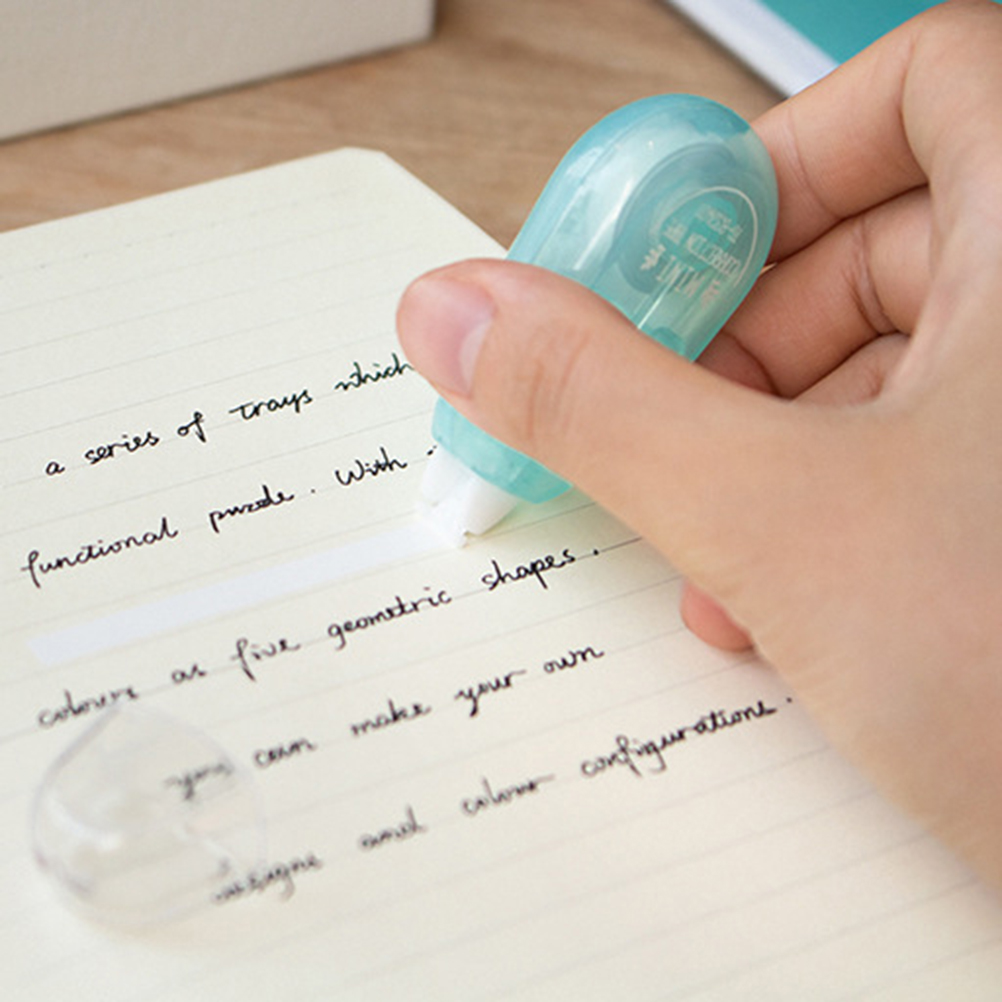 a series of trays which
functional puzzle. With
colours as five geometric shapes.
you can make your own
designs and colour configurations.
MINI
CORRECTION TAPE